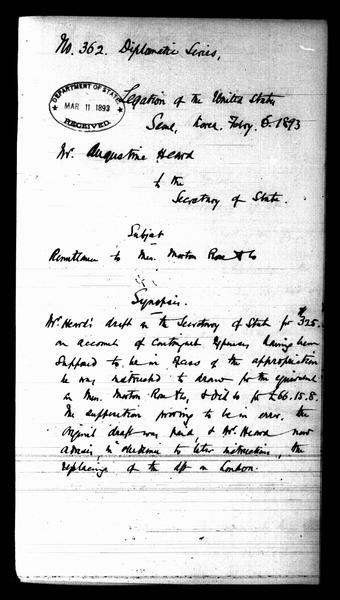 No. 362. Diplomatic Series,
DEPARTMENT OF STATE
MAR 11 1893
RECEIVED
Legation of the United States
Seoul, Korea. Feby. 6. 1893
Mr. Augustine Heard
to the
Secretary of State.
Subject
Remittance to Mess. Morton Rose & Co
Synopsis.
Mr. Heard's draft on the Secretary of State for $325.
on account of Contingent Expenses, having been
supposed to be in excess of the appropriation
he was instructed to draw for the equivalent
on Mess. Morton Rose & Co, & did so for £66.15.8.
The supposition proving to be in error, the
original draft was paid, & Mr. Heard now
advises, in obedience to later instructions, the
replacing of the dft in London.